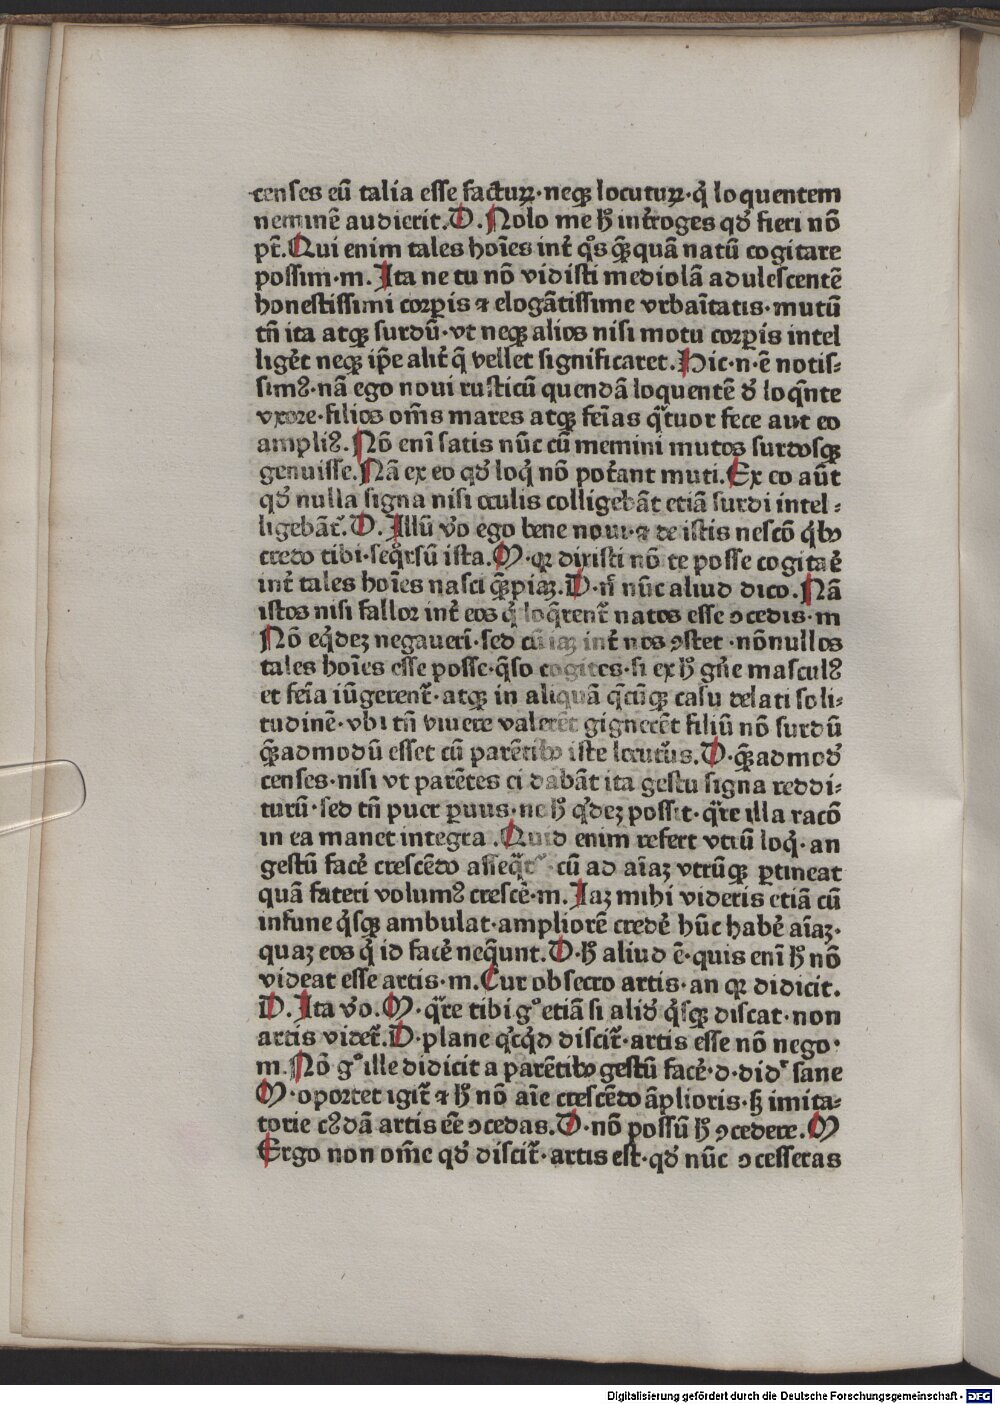 censes eū talia esse facturꝝ·neqꝫ locuturꝝ·q̇ loquentem
neminē audierit.D.Nolo me ħ int̄roges qđ fieri nō
pt̄.Qui enim tales hoīes int̄ qͦs qꝫ̄ quā natū cogitare
possim·m.Ita ne tu nō vidisti mediolā adulescentē
honestissimi corꝑis ⁊ elogātissime vrbaītatis·mutū
tn̄ ita atqꝫ surdū·vt neqꝫ alios nisi motu corꝑis intel
liget̄ neqꝫ ip̄e alit̄ q̄ vellet significaret.Hic·n·ē notis⸗
simꝰ·nā ego noui rusticū quendā loquentē đ loq̄nte
vxore·filios om̄s mares atqꝫ feīas qᷓtuor fece aut eo
ampliꝰ.Nō enī satis nūc cū memini mutos surdosqꝫ
genuisse.Nā ex eo qđ loq̇ nō pot̄ant muti.Ex eo aūt
qđ nulla signa nisi oculis colligebāt etiā surdi intel⸗
ligebāt᷑.D.Illū v̊o ego bene noui·⁊ de istis nescō qͥbꝫ
credo tibi·seqͣrsū ista.M·qꝛ dixisti nō te posse cogitaē
int̄ tales hoīes nasci qꝫ̄piaꝫ.D·n̄ nūc aliud dico.Nā
istos nisi fallor int̄ eos q̇ loq̄rent᷑ natos esse ↄcedis·m
Nō eqͥdeꝫ negauerī·sed cū iaꝫ int̄ nos ↄstet·nōnullos
tales hoīes esse posse·q̄so cogites·si ex ħ gn̄e masculꝰ
et feīa iūgerent᷑·atqꝫ in aliquā qͣcūqꝫ casu delati soli⸗
tudinē·vbi tn̄ viuere valerēt gignerēt filiū nō surdū
qꝫ̄admodū esset cū parētibꝫ iste locutur̄us.D·qꝫ̄admođ
censes·nisi vt parētes ei dabāt ita gestu signa reddi⸗
turū·sed tn̄ puer ꝑuus·ne ħ qͥdeꝫ possit·qᷓre illa racō
in ea manet integra.Quid enim refert vtrū loq̇·an
gestū facē crescēdo asseqͣt᷑·cū ad aīaꝫ vtrūqꝫ ꝑtineat
quā fateri volumꝰ crescē·m.Iaꝫ mihi videris etiā cū
infune qͥsqꝫ ambulat·ampliorē credē hūc habē aīaꝫ·
quaꝫ eos q̇ id facē neq̄unt.D·ħ aliud ē·quis enī ħ nō
videat esse artis·m.Cur obsecro artis·an qꝛ didicit.
D.Ita v̊o.M·qᷓre tibi gͦ etiā si aliđ qͥsqꝫ discat·non
artis videt᷑.D·plane qͥcqͥd discit᷑·artis esse nō nego·
m.Nō gͦ ille didicit a parētibꝫ gestū facē·d·did᷑ sane
M·oportet igit᷑ ⁊ ħ nō aīe crescēdo āplioris·sꝫ imita⸗
torie cꝰdā artis eē ↄcedas.D·nō possū ħ ↄcedere.M
Ergo non om̄e qđ discit᷑·artis est·qđ nūc ↄcesseras
Digitalisierung gefördert durch die Deutsche Forschungsgemeinschaft - DFG